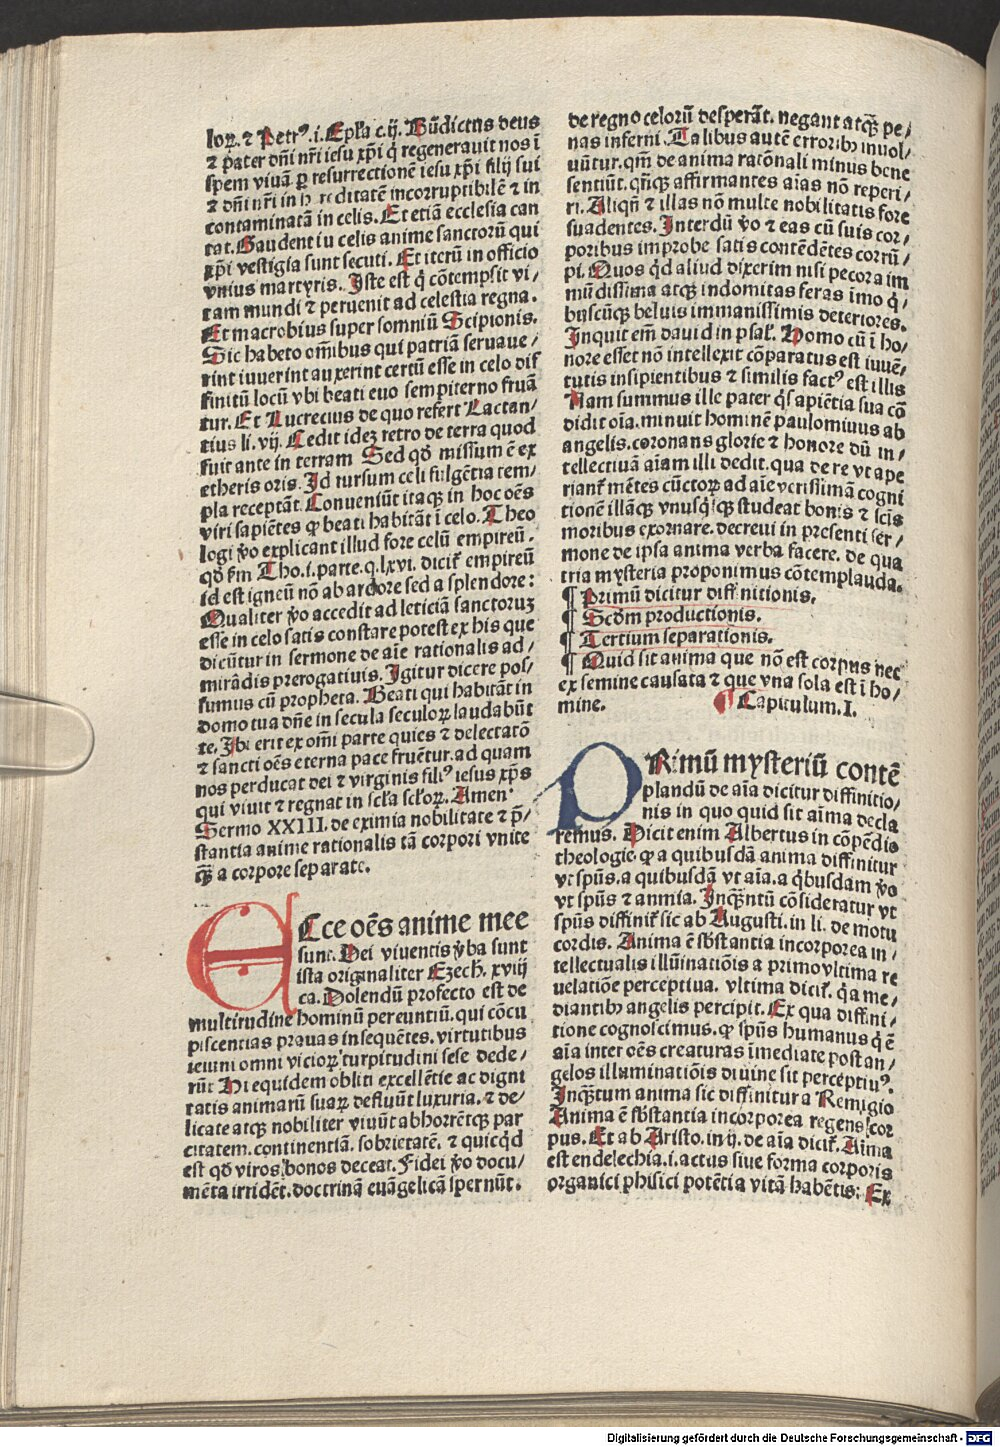 loꝝ. ⁊ Petrꝰ .i. Epl'a c.ij. Bn̄dictus deus
⁊ pater dn̄i nr̄i iesu xp̄i q̇ regenerauit nos ī
spem viuā ꝑ resurrectionē iesu xp̄i filij sui
⁊ dn̄i nr̄i in hereditatē incorruptibilē ⁊ in
contaminatā in celis. Et etiā ecclesia can
tat. Gaudent in celis anime sanctorū qui
xp̄i vestigia sunt secuti. Et iterū in officio
vnius martyris. Iste est q̇ cōtempsit vi/
tam mundi ⁊ peruenit ad celestia regna.
Et macrobius super somniū Scipionis.
Sic habeto om̄ibus qui patriā seruaue/
rint iuuerint auxerint certū esse in celo dif
finitū locū vbi beati euo sempiterno fruā
tur. Et Lucrecius de quo refert Lactan/
tius li. vij. Cedit idez retro de terra quod
fuit ante in terram Sed qd̄ missum ē ex
etheris oris. Id rursum celi fulgētia tem/
pla receptāt. Conueniūt itaqꝫ in hoc oēs
viri sapiētes ꝙ beati habitāt ī celo. Theo
logi v̄o explicant illud fore celū empireū.
qd̄ fm Tho. i. parte. q. lxvi. dicit̄ empireū
id est igneū nō ab ardore sed a splendore:
Qualiter v̄o accedit ad leticiā sanctoruꝫ
esse in celo satis constare potest ex his que
dicūtur in sermone de aīe rationalis ad/
mirādis prerogatiuis. Igitur dicere pos/
sumus cū propheta. Beati qui habitāt in
domo tua dn̄e in secula seculoꝝ laudabūt
te. Ibi erit ex om̄i parte quies ⁊ delectatō
⁊ sancti oēs eterna pace fruētur. ad quam
nos perducat dei ⁊ virginis filiꝰ iesus xp̄s
qui viuit ⁊ regnat in scl'a scl'oꝝ. Amen.
Sermo XXIII. de eximia nobilitate ⁊ p̄/
stantia anime rationalis tā corpori vnite
qꝫ̄ a corpore separate.
ECce oēs anime mee
sunt. Dei viuentis v̄ba sunt
ista originaliter Ezech. xviij
ca. Dolendū profecto est de
multitudine hominū pereuntiū. qui cōcu
piscentias prauas insequētes. virtutibus
ieiuni omni vicioꝝ turpitudini sese dede/
rūt Hi equidem obliti excellētie ac digni
tatis animarū suaꝝ defluūt luxuria. ⁊ de/
licate atqꝫ nobiliter viuūt abhorrētqꝫ par
citatem. continentiā. sobrietatē. ⁊ quicq̇d
est qd̄ viros bonos deceat. Fidei v̄o docu/
mēta irridēt. doctrinā euāgelicā spernūt.
de regno celorū desperāt. negant atqꝫ pe/
nas inferni. Talibus autē erroribꝫ inuol/
uūtur. qm̄ de anima ratōnali minus bene
sentiūt. qn̄qꝫ affirmantes aīas nō reperi/
ri. Aliqn̄ ⁊ illas nō multe nobilitatis fore
suadentes. Interdū v̄o ⁊ eas cū suis cor/
poribus improbe satis contēdētes corrū/
pi. Quos q̇d aliud dixerim nisi pecora im
mūdissima atqꝫ indomitas feras īmo q̇/
buscūqꝫ beluis immanissimis deteriores.
Inquit em̄ dauid in psal'. Homo cū ī ho/
nore esset nō intellexit cōparatus est iumē/
tis insipientibus ⁊ similis factꝰ est illis
Nam summus ille pater q̇ sapiētia sua cō
didit oīa. minuit hominē paulominus ab
angelis. coronans glorie ⁊ honore dū in/
tellectiuā aīam illi dedit. qua de re vt ape
riant̄ mētes cūctoꝝ ad aīe verissimā cogni
tionē illāqꝫ vnusq̇sqꝫ studeat bonis ⁊ scīs
moribus exornare. decreui in presenti ser/
mone de ipsa anima verba facere. de qua
tria mysteria proponimus cōtemplanda.
¶ Primū dicitur diffinitionis.
¶ Scd̄m productionis.
¶ Tertium separationis.
¶ Quid sit anima que nō est corpus nec
ex semine causata ⁊ que vna sola est ī ho/
mine. ¶ Capitulum. I.
PRimū mysteriū contē
plandū de aīa dicitur diffinitio/
nis in quo quid sit aīma decla
remus. Dicit enim Albertus in cōpēdio
theologie. ꝙ a quibusdā anima diffinitur
vt spūs. a quibusdā vt aīa. a q̇busdam v̄o
vt spūs ⁊ anmia. Inqꝫ̄ntū cōsideratur vt
spūs diffinit̄ sic ab Augusti. in li. de motu
cordis. Anima ē sb̄stantia incorporea in/
tellectualis illūinatiōis a primo vltima re
uelatiōe perceptiua. vltima dicit̄. q̇a me/
diantibꝫ angelis percipit. Ex qua diffini/
tione cognoscimus. ꝙ spūs humanus q̇ ē
aīa inter oēs creaturas īmediate post an/
gelos illuminatiōis diuine sit perceptiuꝰ.
Inqꝫ̄tum anima sic diffinitur a Remigio
Anima ē sb̄stantia incorporea regens cor
pus. Et ab Aristo. in ij. de aīa dicit̄. Aīma
est endelechia. i. actus siue forma corporis
organici phisici potētia vitā habētis: Ex
Digitalisierung gefördert durch die Deutsche Forschungsgemeinschaft - DFG